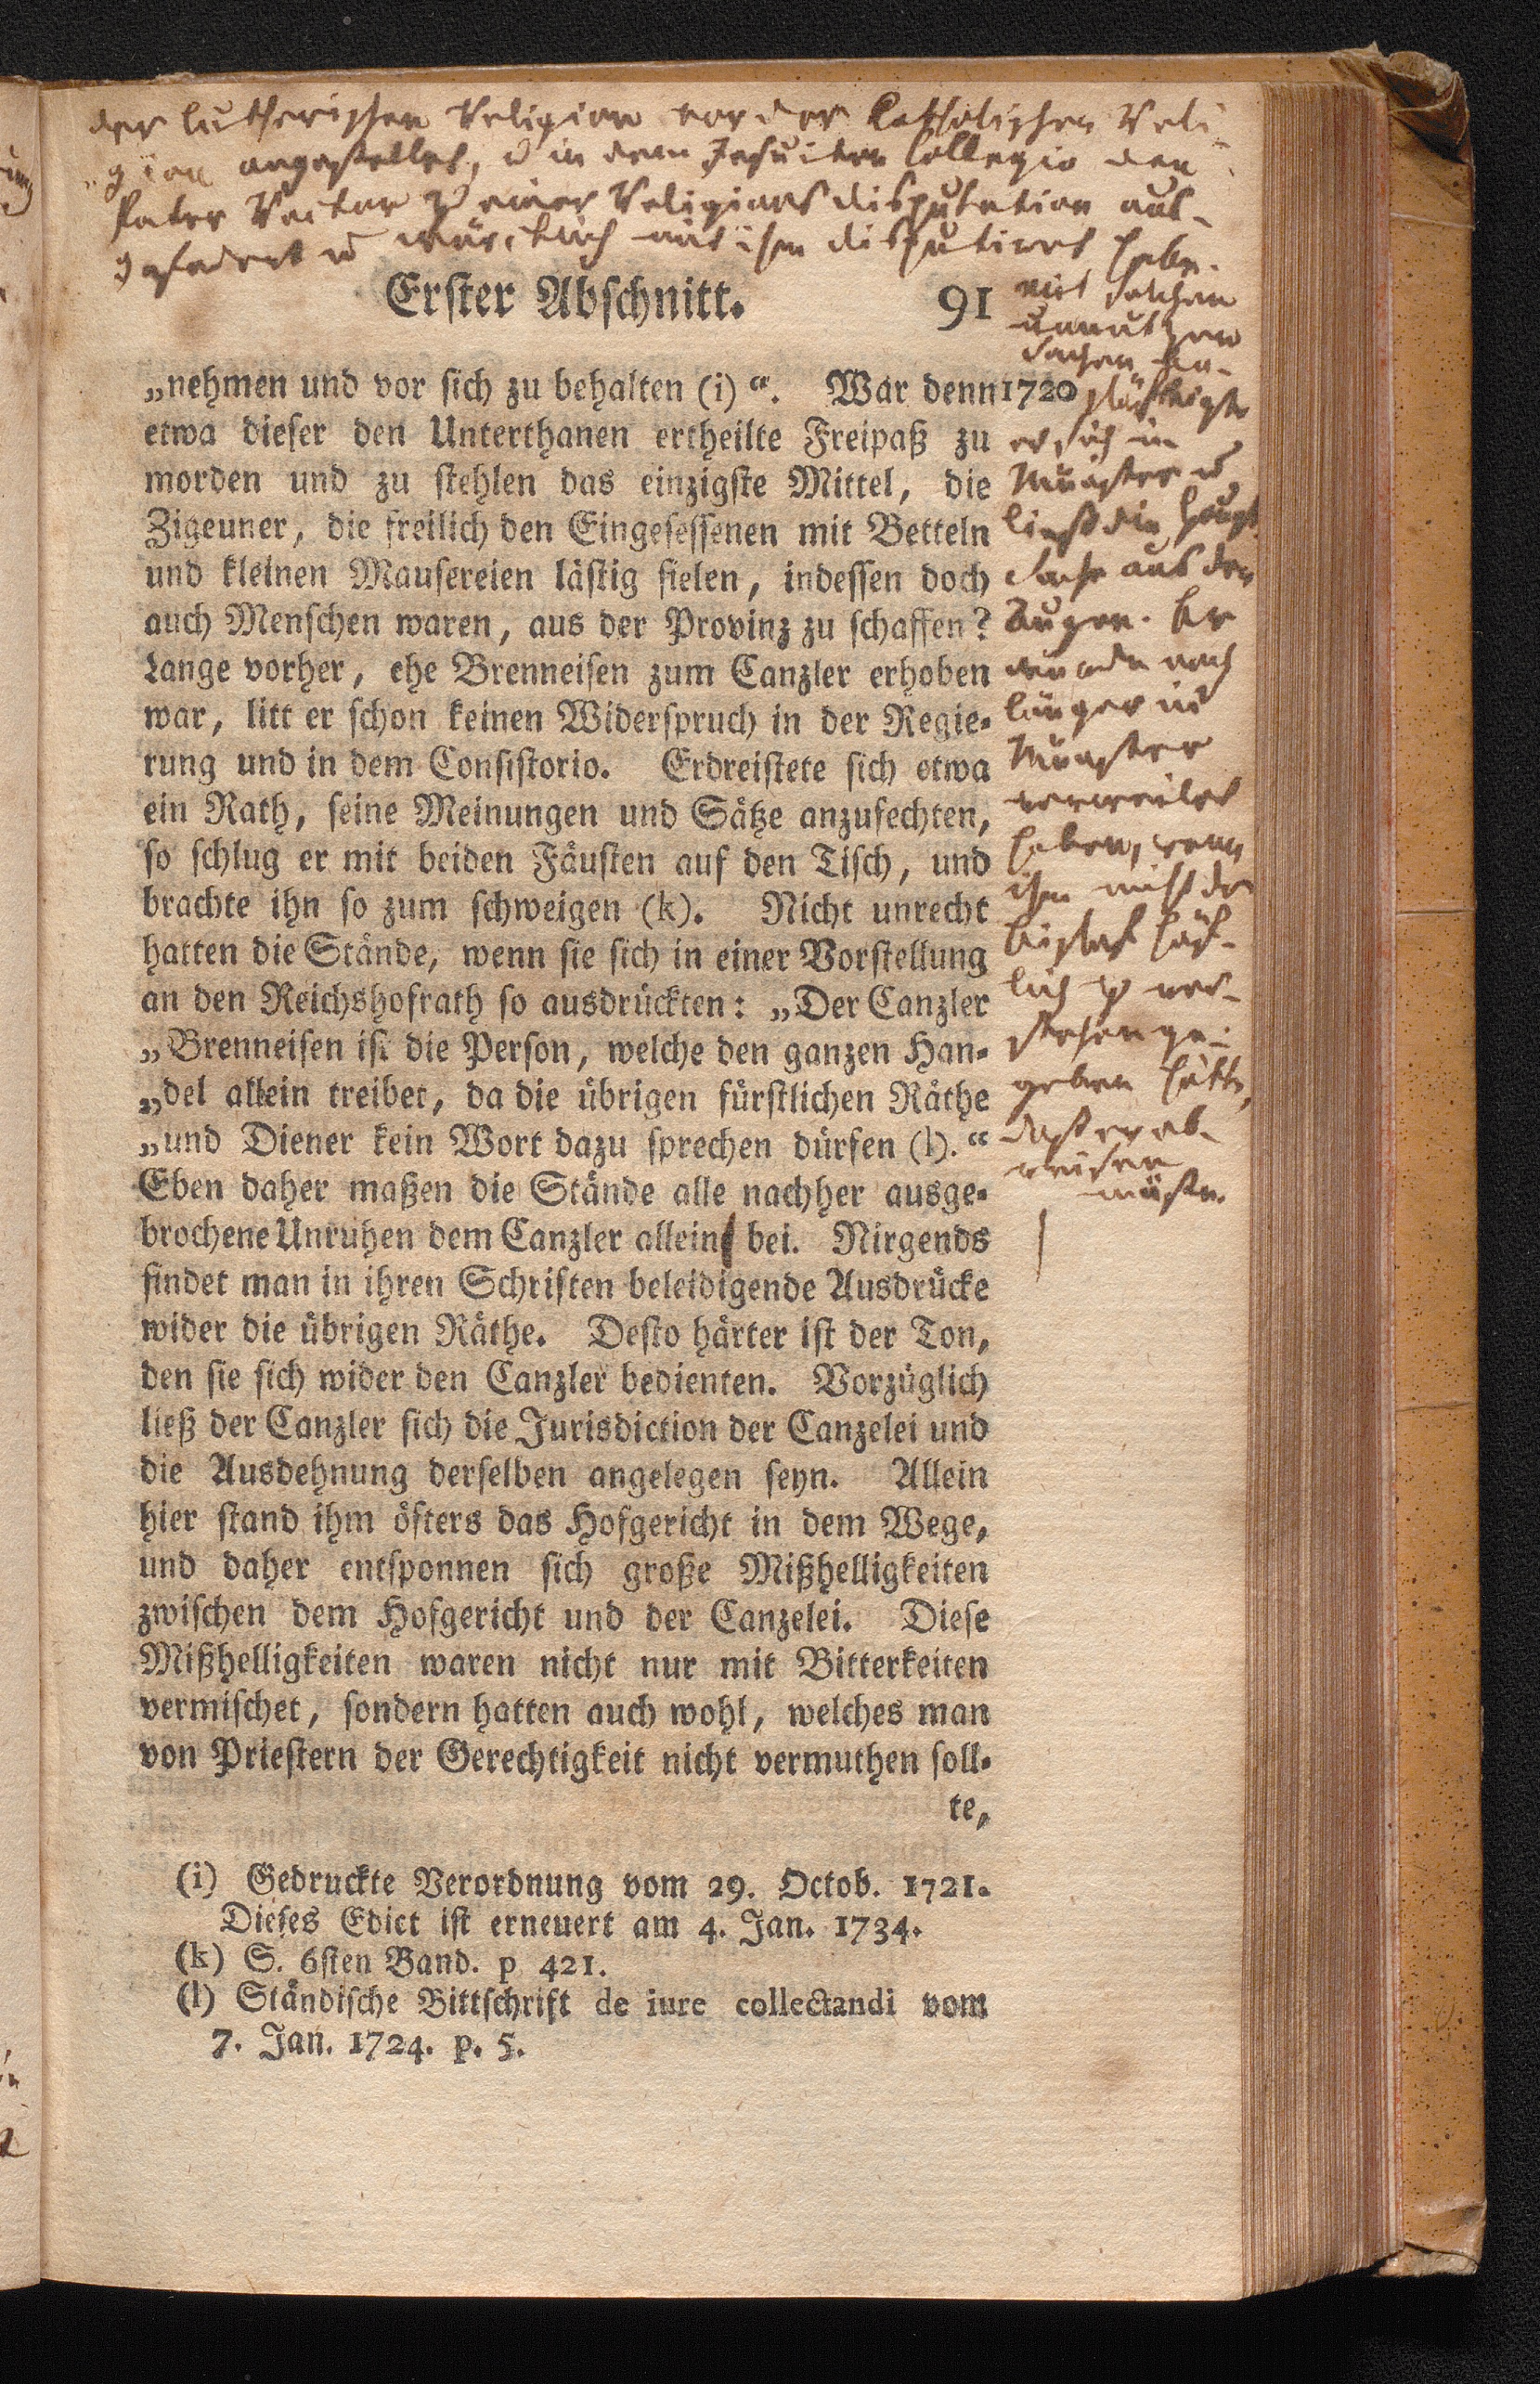 der lutherischen Religion vor der Catholischen Reli-
gion angestellet, u in dem Jesuiter Collegio den
Pater Rector zu einer Religions disputation aus-
gefodert u würcklich mit ihm disputiret habe.
Erster Abschnitt. 91
mit solchen
unnutzen
Sachen be-
schäftigte
er sich in
Münster u
liess die Haupt
Sache aus den
Augen. Er
würde noch
länger in
Münster
verweilet
haben, wenn
ihm nicht der
Bischof höf-
lich zu ver-
stehen ge-
geben hätte,
dass er ab-
reisen
müste.
„nehmen und vor sich zu behalten (i) “. War denn 1720
etwa dieser den Unterthanen ertheilte Freipaß zu
morden und zu stehlen das einzigste Mittel, die
Zigeuner, die freilich den Eingesessenen mit Betteln
und kleinen Mausereien lästig fielen, indessen doch
auch Menschen waren, aus der Provinz zu schaffen?
Lange vorher, ehe Brenneisen zum Canzler erhoben
war, litt er schon keinen Widerspruch in der Regie-
rung und in dem Consistorio. Erdreistete sich etwa
ein Rath, seine Meinungen und Sätze anzufechten,
so schlug er mit beiden Fäusten auf den Tisch, und
brachte ihn so zum schweigen (k). Nicht unrecht
hatten die Stände, wenn sie sich in einer Vorstellung
an den Reichshofrath so ausdrückten: „Der Canzler
„Brenneisen ist die Person, welche den ganzen Han-
„del allein treibet, da die übrigen fürstlichen Räthe
„und Diener kein Wort dazu sprechen dürfen (l).“
Eben daher maßen die Stände alle nachher ausge-
brochene Unruhen dem Canzler allein bei. Nirgends
findet man in ihren Schriften beleidigende Ausdrücke
wider die übrigen Räthe. Desto härter ist der Ton,
den sie sich wider den Canzler bedienten. Vorzüglich
ließ der Canzler sich die Jurisdiction der Canzelei und
die Ausdehnung derselben angelegen seyn. Allein
hier stand ihm öfters das Hofgericht in dem Wege,
und daher entsponnen sich große Mißhelligkeiten
zwischen dem Hofgericht und der Canzelei. Diese
Mißhelligkeiten waren nicht nur mit Bitterkeiten
vermischet, sondern hatten auch wohl, welches man
von Priestern der Gerechtigkeit nicht vermuthen soll-
te,
(i) Gedruckte Verordnung vom 29. Octob. 1721.
Dieses Edict ist erneuert am 4. Jan. 1734.
(k) S. 6sten Band. p 421.
(l) Ständische Bittschrift de iure collectandi vom
7. Jan. 1724. p. 5.